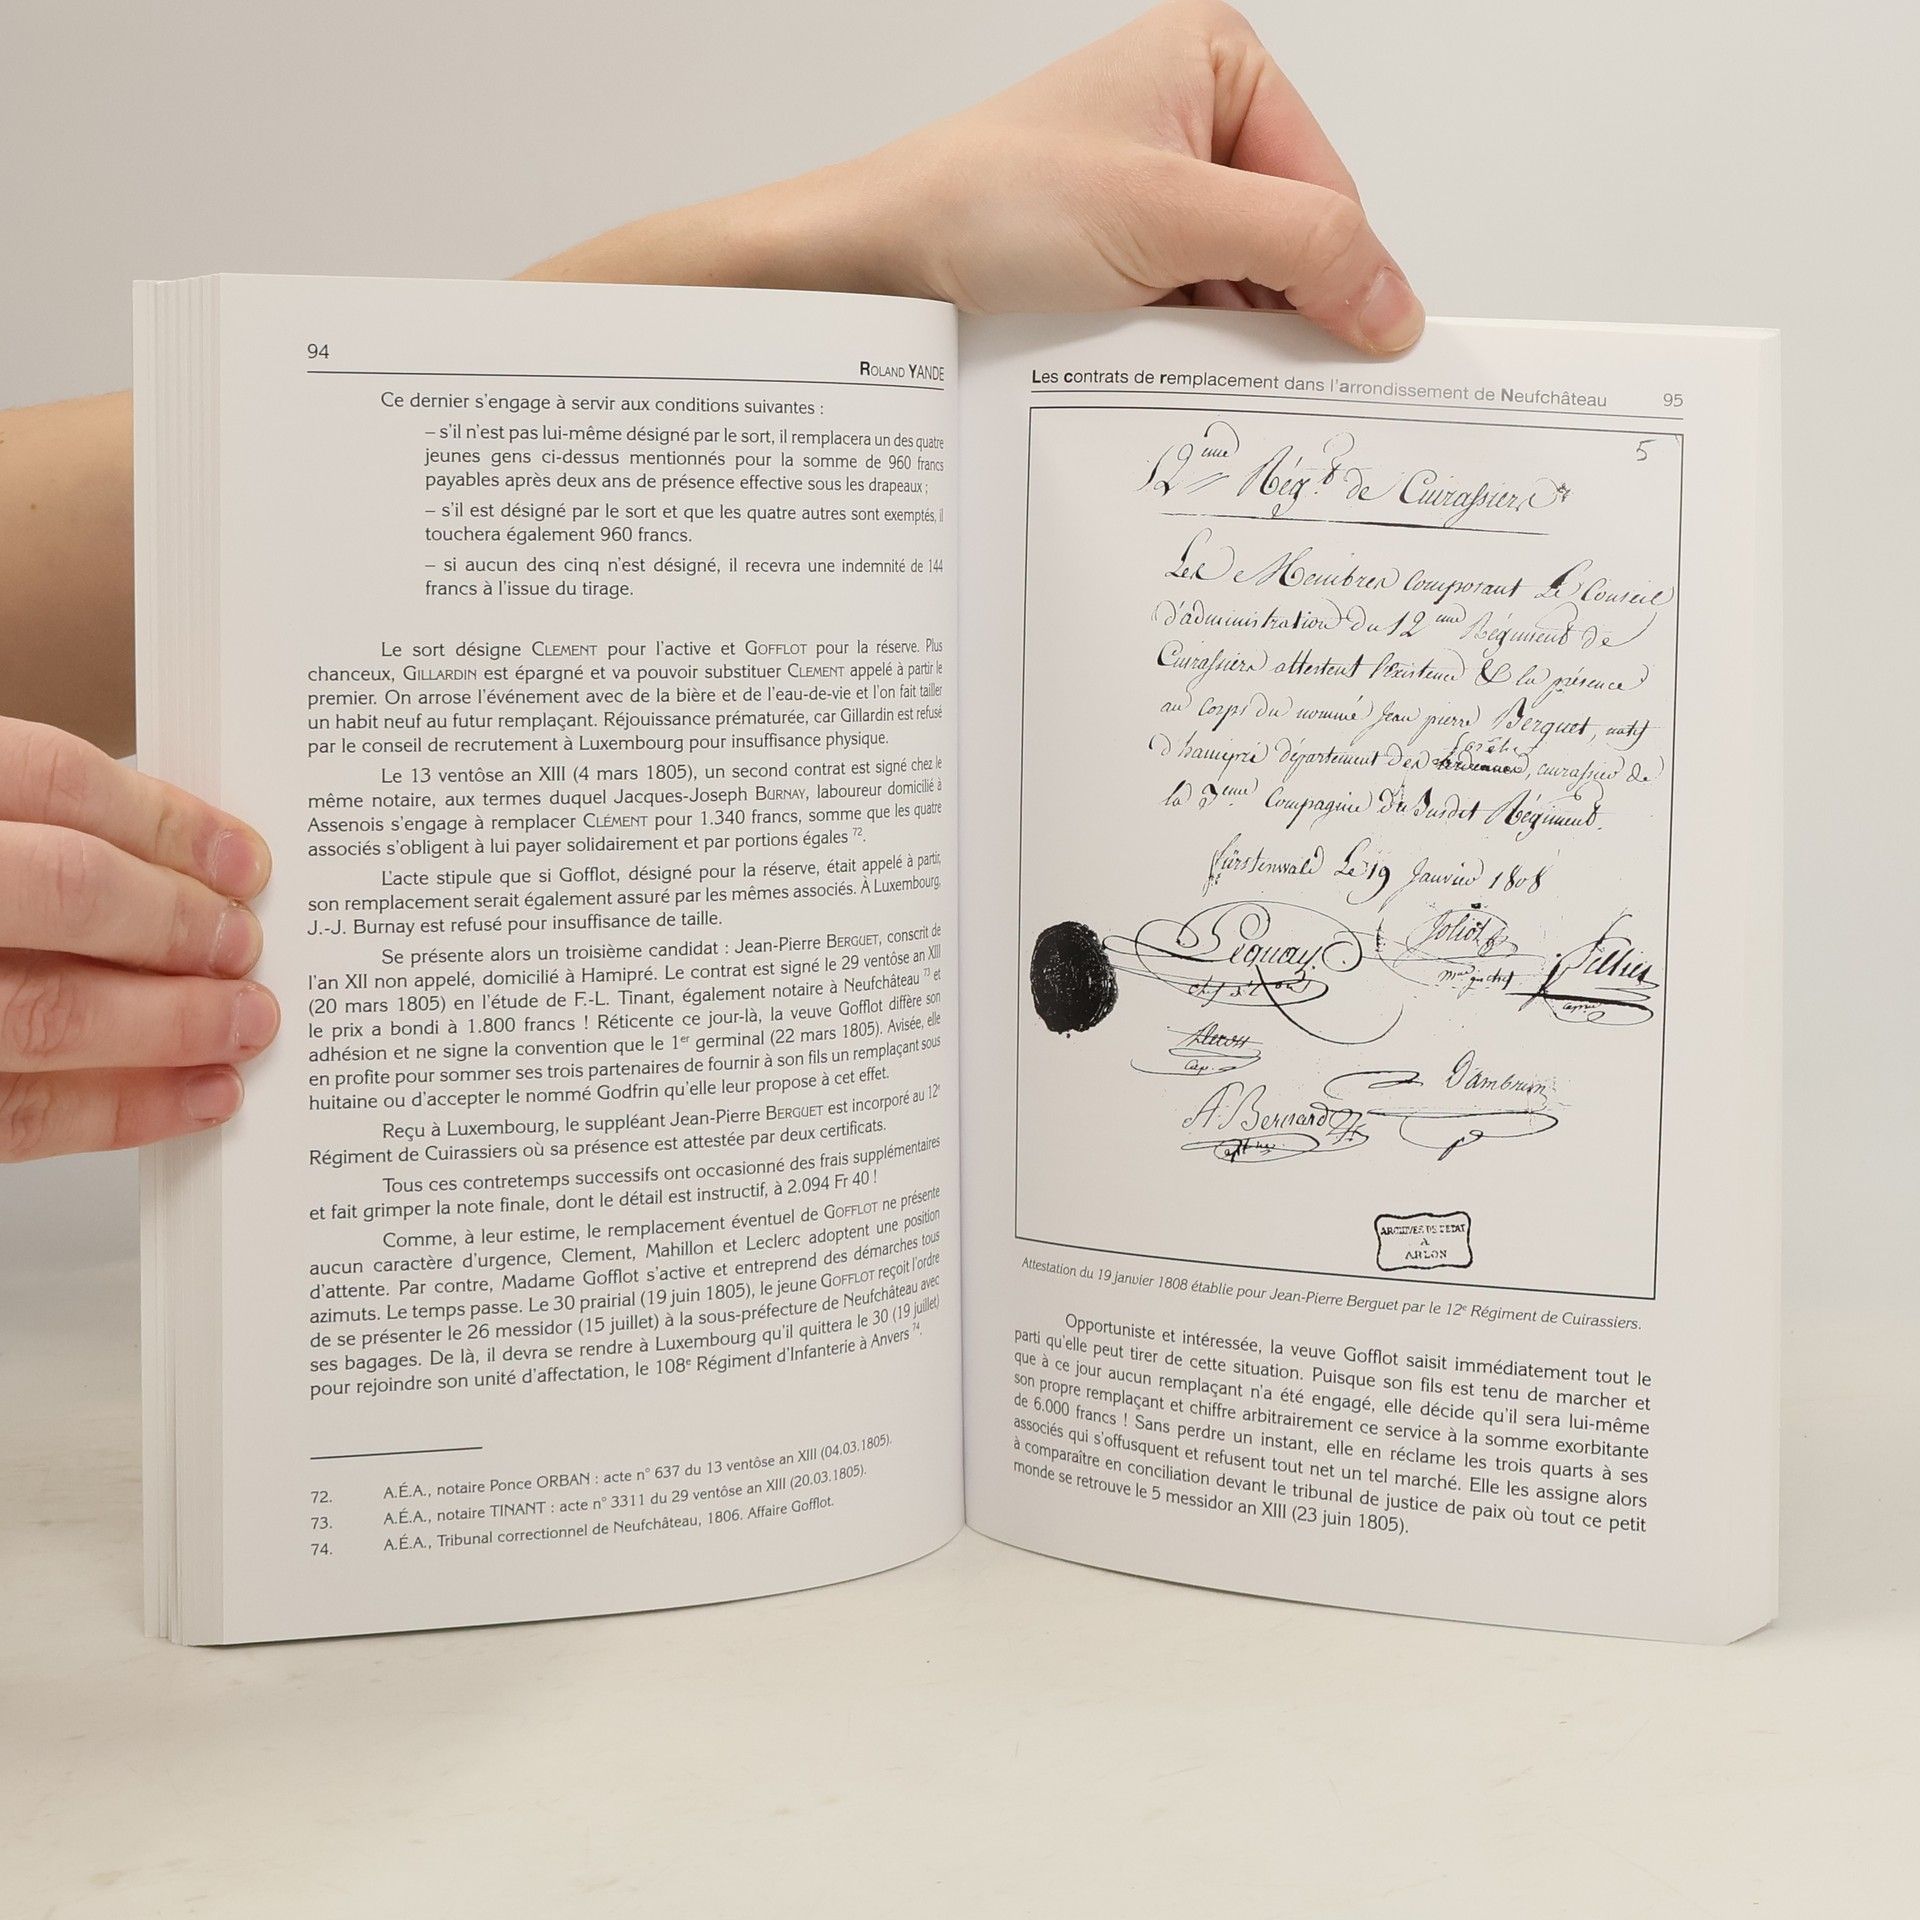 94
ROLAND YANDE
Ce dernier s'engage à servir aux conditions suivantes :
– s'il n'est pas lui-même désigné par le sort, il remplacera un des quatre
jeunes gens ci-dessus mentionnés pour la somme de 960 francs
payables après deux ans de présence effective sous les drapeaux ;
– s'il est désigné par le sort et que les quatre autres sont exemptés, il
touchera également 960 francs.
– si aucun des cinq n'est désigné, il recevra une indemnité de 144
francs à l'issue du tirage.
Le sort désigne CLEMENT pour l'active et GOFFLOT pour la réserve. Plus
chanceux, GILLARDIN est épargné et va pouvoir substituer CLEMENT appelé à partir le
premier. On arrose l'événement avec de la bière et de l'eau-de-vie et l'on fait tailler
un habit neuf au futur remplaçant. Réjouissance prématurée, car Gillardin est refusé
par le conseil de recrutement à Luxembourg pour insuffisance physique.
Le 13 ventôse an XIII (4 mars 1805), un second contrat est signé chez le
même notaire, aux termes duquel Jacques-Joseph BURNAY, laboureur domicilié à
Assenois s'engage à remplacer CLÉMENT pour 1.340 francs, somme que les quatre
associés s'obligent à lui payer solidairement et par portions égales 72.
L'acte stipule que si Gofflot, désigné pour la réserve, était appelé à partir,
son remplacement serait également assuré par les mêmes associés. À Luxembourg,
J.-J. Burnay est refusé pour insuffisance de taille.
Se présente alors un troisième candidat : Jean-Pierre BERGUET, conscrit de
l'an XII non appelé, domicilié à Hamipré. Le contrat est signé le 29 ventôse an XIII
(20 mars 1805) en l'étude de F.-L. Tinant, également notaire à Neufchâteau 73 et
le prix a bondi à 1.800 francs ! Réticente ce jour-là, la veuve Gofflot diffère son
adhésion et ne signe la convention que le 1er germinal (22 mars 1805). Avisée, elle
en profite pour sommer ses trois partenaires de fournir à son fils un remplaçant sous
huitaine ou d'accepter le nommé Godfrin qu'elle leur propose à cet effet.
Reçu à Luxembourg, le suppléant Jean-Pierre BERGUET est incorporé au 12e
Régiment de Cuirassiers où sa présence est attestée par deux certificats.
Tous ces contretemps successifs ont occasionné des frais supplémentaires
et fait grimper la note finale, dont le détail est instructif, à 2.094 Fr 40 !
Comme, à leur estime, le remplacement éventuel de GOFFLOT ne présente
aucun caractère d'urgence, Clement, Mahillon et Leclerc adoptent une position
d'attente. Par contre, Madame Gofflot s'active et entreprend des démarches tous
azimuts. Le temps passe. Le 30 prairial (19 juin 1805), le jeune GOFFLOT reçoit l'ordre
de se présenter le 26 messidor (15 juillet) à la sous-préfecture de Neufchâteau avec
ses bagages. De là, il devra se rendre à Luxembourg qu'il quittera le 30 (19 juillet)
pour rejoindre son unité d'affectation, le 108e Régiment d'Infanterie à Anvers 74.
72. A.É.A., notaire Ponce ORBAN : acte n° 637 du 13 ventôse an XIII (04.03.1805).
73. A.É.A., notaire TINANT : acte n° 3311 du 29 ventôse an XIII (20.03.1805).
74. A.É.A., Tribunal correctionnel de Neufchâteau, 1806. Affaire Gofflot.
Les contrats de remplacement dans l'arrondissement de Neufchâteau 95
5
12eme Régt de Cuirassiers
Les Membres composant Le Conseil
d'administration du 12eme Régiment de
Cuirassiers attestent l'existence & la présence
au Corps du nommé Jean pierre Berguet, natif
d'hamipré département des forêts, cuirassier de
la 3eme Compagnie du susdit Régiment.
fürstenwald Le 19 Janvier 1808
Pequay
Joliot
A. Bernard
Dambrun
ARCHIVES DE L'ETAT
A
ARLON
Attestation du 19 janvier 1808 établie pour Jean-Pierre Berguet par le 12e Régiment de Cuirassiers.
Opportuniste et intéressée, la veuve Gofflot saisit immédiatement tout le
parti qu'elle peut tirer de cette situation. Puisque son fils est tenu de marcher et
que à ce jour aucun remplaçant n'a été engagé, elle décide qu'il sera lui-même
son propre remplaçant et chiffre arbitrairement ce service à la somme exorbitante
de 6.000 francs ! Sans perdre un instant, elle en réclame les trois quarts à ses
associés qui s'offusquent et refusent tout net un tel marché. Elle les assigne alors
à comparaître en conciliation devant le tribunal de justice de paix où tout ce petit
monde se retrouve le 5 messidor an XIII (23 juin 1805).